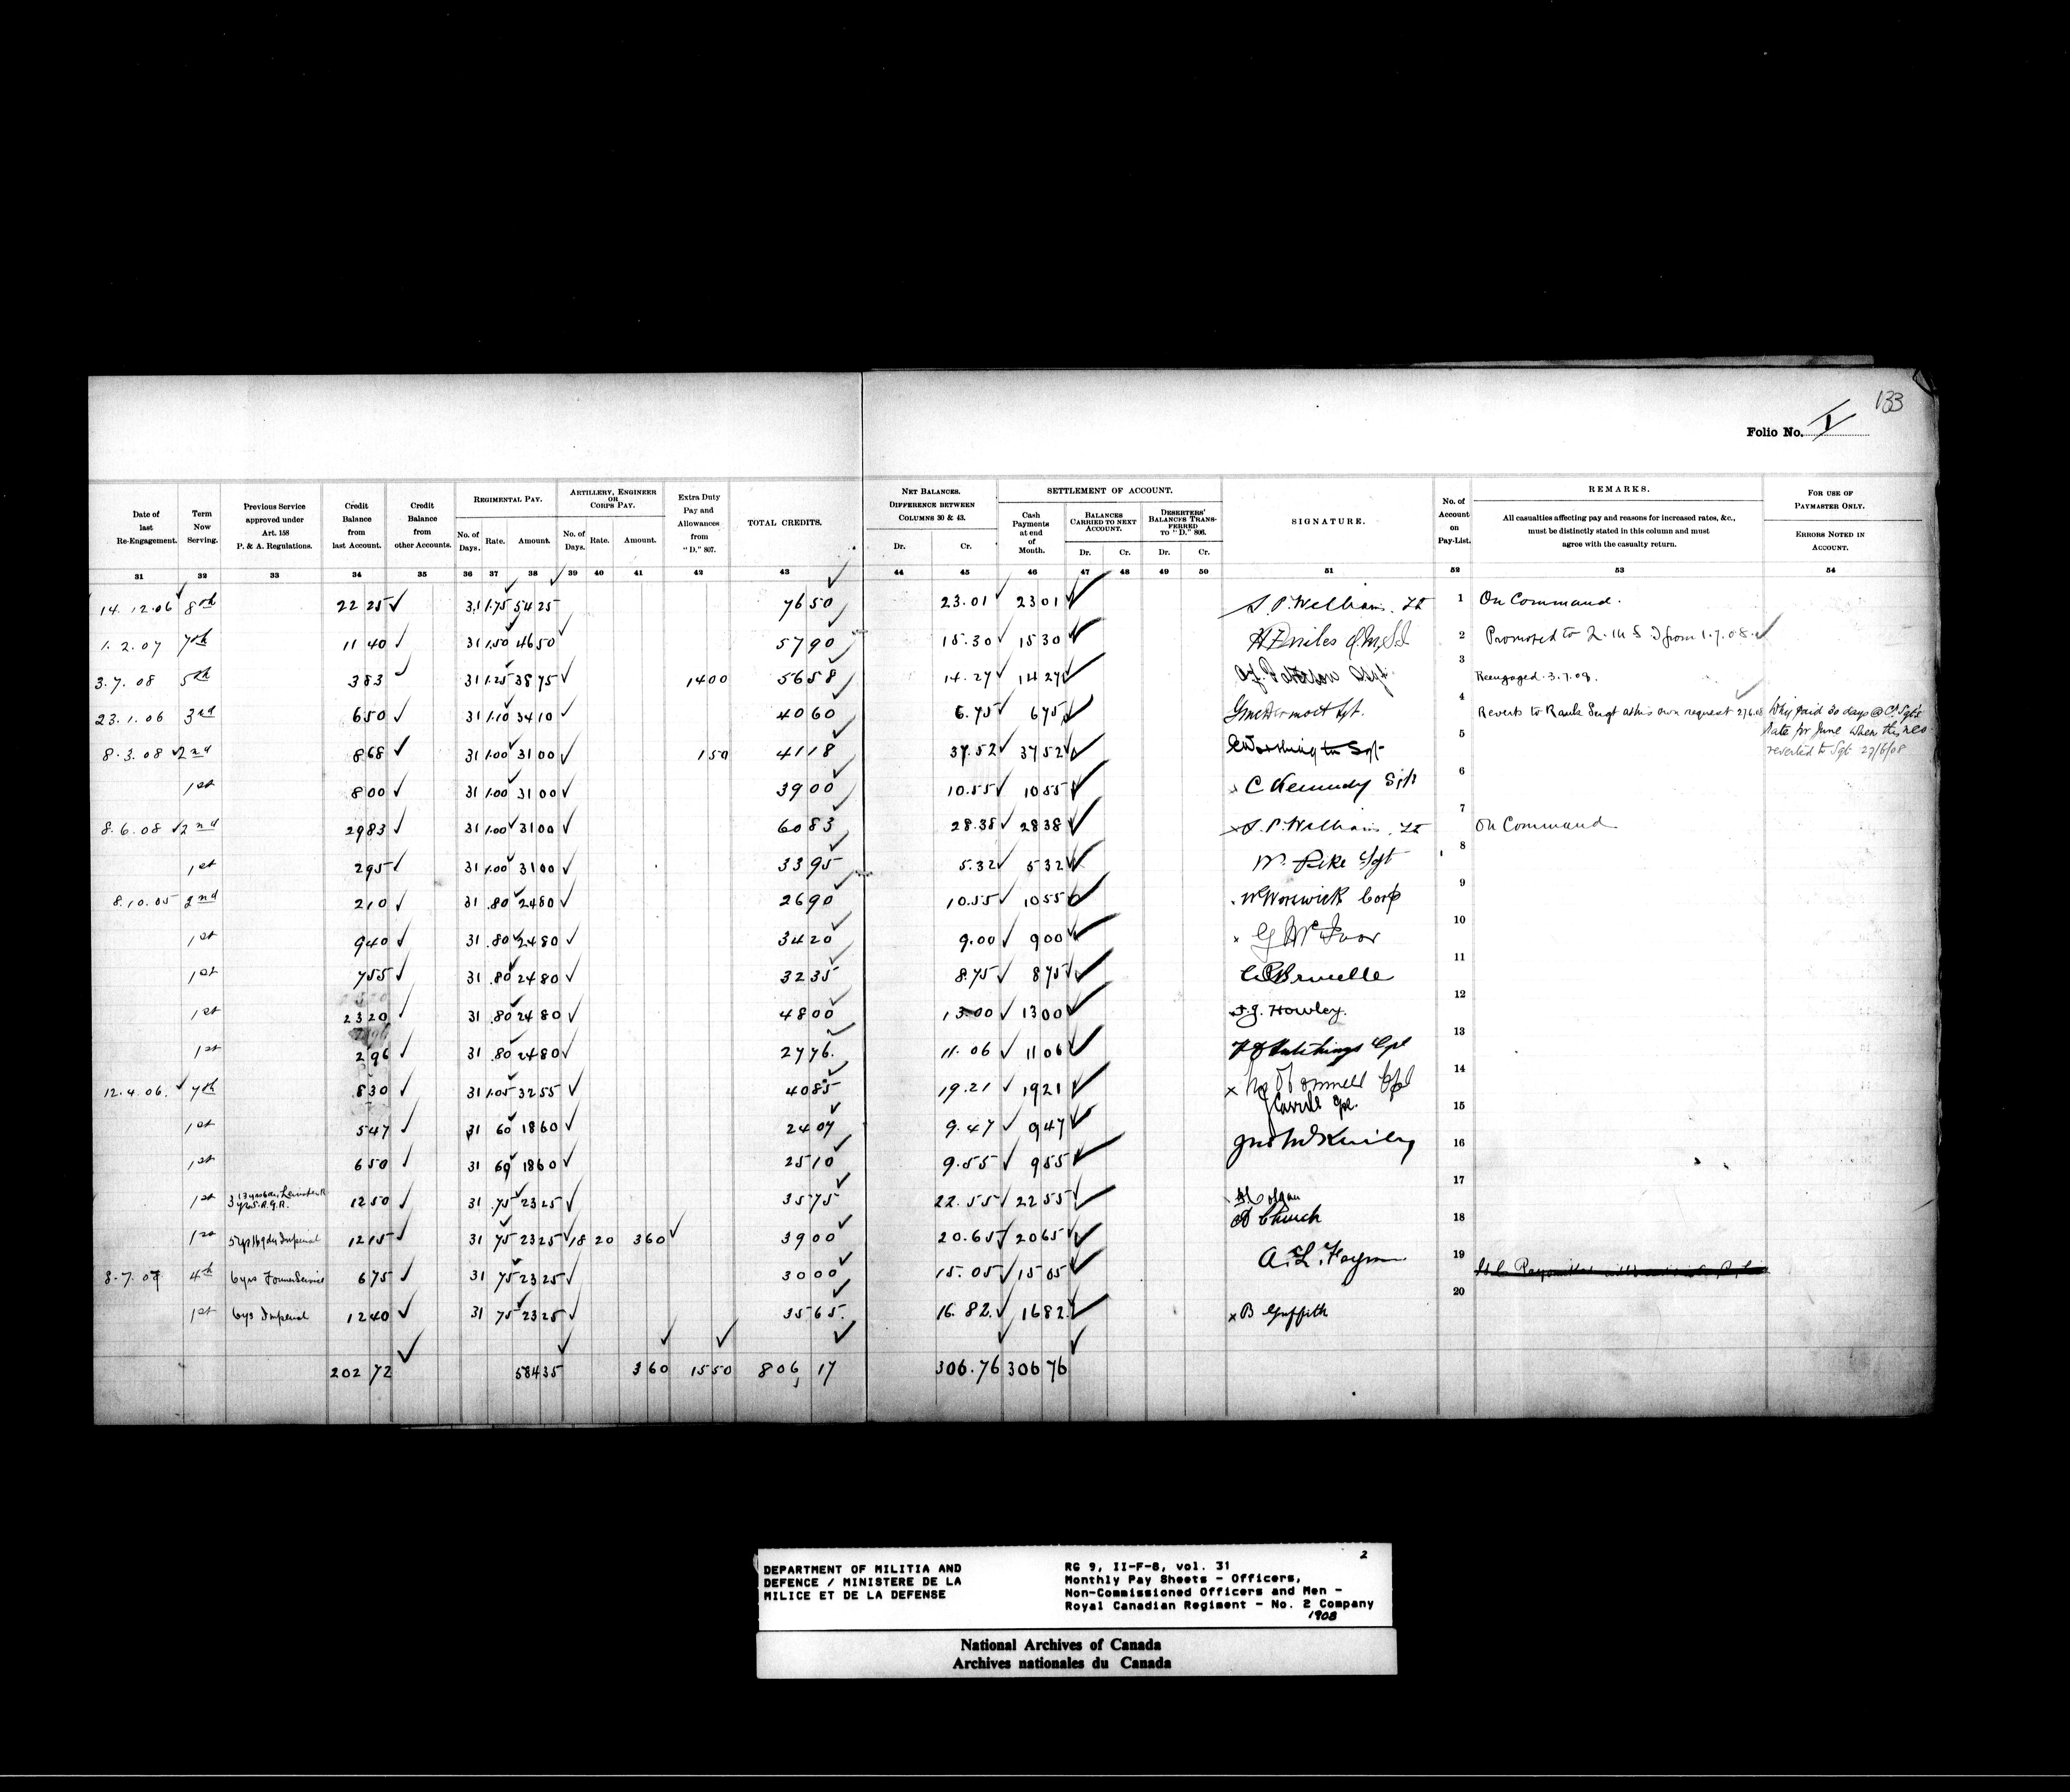 133
Folio No. V
Date of last Re-Engagement. Term Now Serving. Previous Service approved under Art. 158 P. & A. Regulations. Credit Balance from last Account. Credit Balance from other Accounts. REGIMENTAL PAY. No. of Days. Rate. Amount. ARTILLERY, ENGINEER OR CORPS PAY. No. of Days. Rate. Amount. Extra Duty Pay and Allowances from "D." 807. TOTAL CREDITS. NET BALANCES. DIFFERENCE BETWEEN COLUMNS 30 & 43. Dr. Cr. SETTLEMENT OF ACCOUNT. Cash Payments at end of Month. BALANCES CARRIED TO NEXT ACCOUNT. Dr. Cr. DESERTERS' BALANCES TRANSFERRED TO "D." 806. Dr. Cr. SIGNATURE. No. of Account on Pay-List. REMARKS. All casualties affecting pay and reasons for increased rates, &c., must be distinctly stated in this column and must agree with the casualty return. FOR USE OF PAYMASTER ONLY. ERRORS NOTED IN ACCOUNT.
31 32 33 34 35 36 37 38 39 40 41 42 43 44 45 46 47 48 49 50 51 52 53 54
14.12.06 8th 22 25 31 1.75 54 25 76 50 23.01 23 01 S. P. Williams. Lt 1 On Command.
1.2.07 7th 11 40 31 1.50 46 50 57 90 15.30 15 30 2 Promoted to Q.M.S I from 1.7.08
3.7.08 5th 3 83 31 1.25 38 75 14 00 56 58 14.27 14 27 3 Reengaged 3.7.08.
23.1.06 3rd 6 50 31 1.10 34 10 40 60 6.75 6 75 GMcDermott Sgt. 4 Reverts to Rank Sergt at his own request 27.6.08 Why paid 30 days @ C. Sgt's rate for June when this nco reverted to Sgt 27/6/08
8.3.08 2nd 8 68 31 1.00 31 00 1 50 41 18 37.52 37 52 CWorthington Sgt 5
1st 8 00 31 1.00 31 00 39 00 10.55 10 55 x C Kennedy Sgt 6
8.6.08 2nd 29 83 31 1.00 31 00 60 83 28.38 28 38 x S. P. Williams. Lt 7 On Command
1st 2 95 31 1.00 31 00 33 95 5.32 5 32 W. Pike Sgt 8
8.10.05 2nd 2 10 31 .80 24 80 26 90 10.55 10 55 W Worswick Corp 9
1st 9 40 31 .80 24 80 34 20 9.00 9 00 x G McIvor 10
1st 7 55 31 .80 24 80 32 35 8.75 8 75 11
1st 23 20 31 .80 24 80 48 00 13.00 13 00 J. Howley. 12
1st 2 96 31 .80 24 80 27 76. 11.06 11 06 Hutchings Cpl 13
12.4.06. 7th 8 30 31 1.05 32 55 40 85 19.21 19 21 x 14
1st 5 47 31 60 18 60 24 07 9.47 9 47 J Carroll Cpl. 15
1st 6 50 31 60 18 60 25 10 9.55 9 55 16
1st 12 50 31 .75 23 25 35 75 22.55 22 55 17
1st 12 15 31 75 23 25 18 20 3 60 39 00 20.65 20 65 Church 18
8.7.07 4th 6 yrs Former Service 6 75 31 75 23 25 30 00 15.05 15 05 19
1st 6 yrs Imperial 12 40 31 75 23 25 35 65. 16.82. 16 82. x B Griffith 20
202 72 584 35 3 60 15 50 806 17 306.76 306 76
DEPARTMENT OF MILITIA AND
DEFENCE / MINISTERE DE LA
MILICE ET DE LA DEFENSE
2
RG 9, II-F-8, vol. 31
Monthly Pay Sheets - Officers,
Non-Commissioned Officers and Men -
Royal Canadian Regiment - No. 2 Company
1908
National Archives of Canada
Archives nationales du Canada